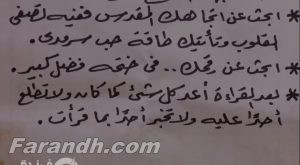 * ابحث عن اتجاهك المقدس ففيه تصفى
القلوب وتأتيك طاقة حب سرمدي.
* ابحث عن قمحك.. في ختمه فضل كبير.
* بعد القراءة أعد كل شئ كما كان ولا تطلع
أحدًا عليه ولا تخبر أحدًا بما قرأت.
Farandh.com